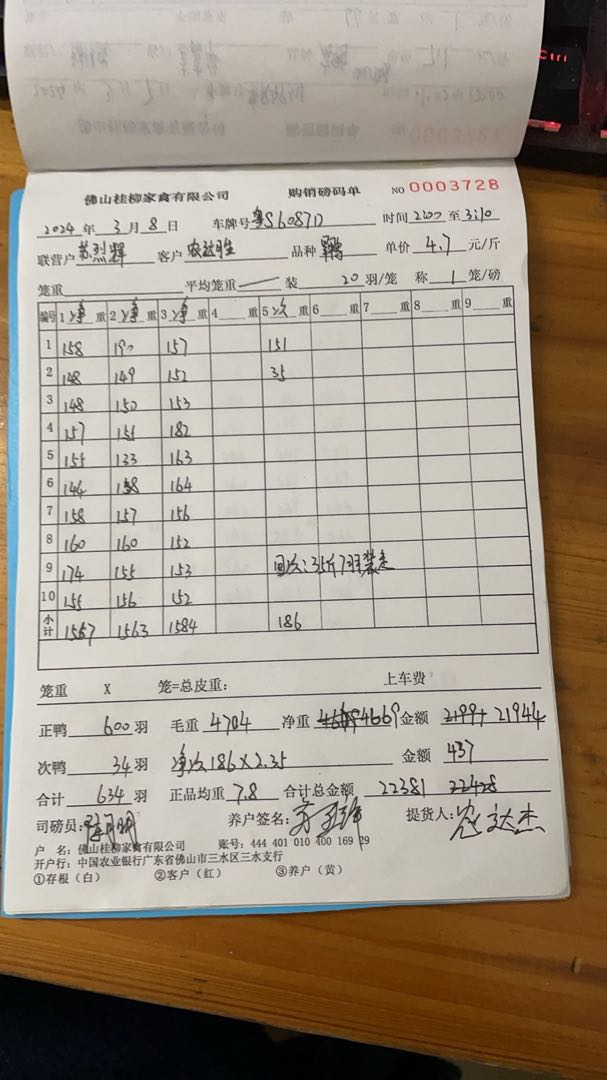 佛山桂柳家禽有限公司 购销磅码单 NO 0003728
2024 年 3 月 8 日 车牌号 粤S6087D 时间 2:00 至 3:10
联营户 苏烈辉 客户 农达胜 品种 单价 4.7 元/斤
笼重 平均笼重 装 20 羽/笼 称 1 笼/磅
编号 1 净 重 2 净 重 3 净 重 4 重 5 次 重 6 重 7 重 8 重 9 重
1 158 190 157 151
2 148 149 152 35
3 148 150 153
4 157 155 182
5 155 133 163
6 144 158 164
7 158 157 156
8 160 160 152
9 174 155 153 回次:35斤7羽装走
10 155 156 152
小计 1557 1563 1584 186
笼重 X 笼=总皮重: 上车费
正鸭 600 羽 毛重 4704 净重 4669 金额 21944
次鸭 34 羽 净次186×2.35 金额 437
合计 634 羽 正品均重 7.8 合计总金额 22381 22428
司磅员: 养户签名: 提货人:
户 名: 佛山桂柳家禽有限公司 账号: 444 401 010 400 169 29
开户行: 中国农业银行广东省佛山市三水区三水支行
①存根（白） ②客户（红） ③养户（黄）
Ctrl